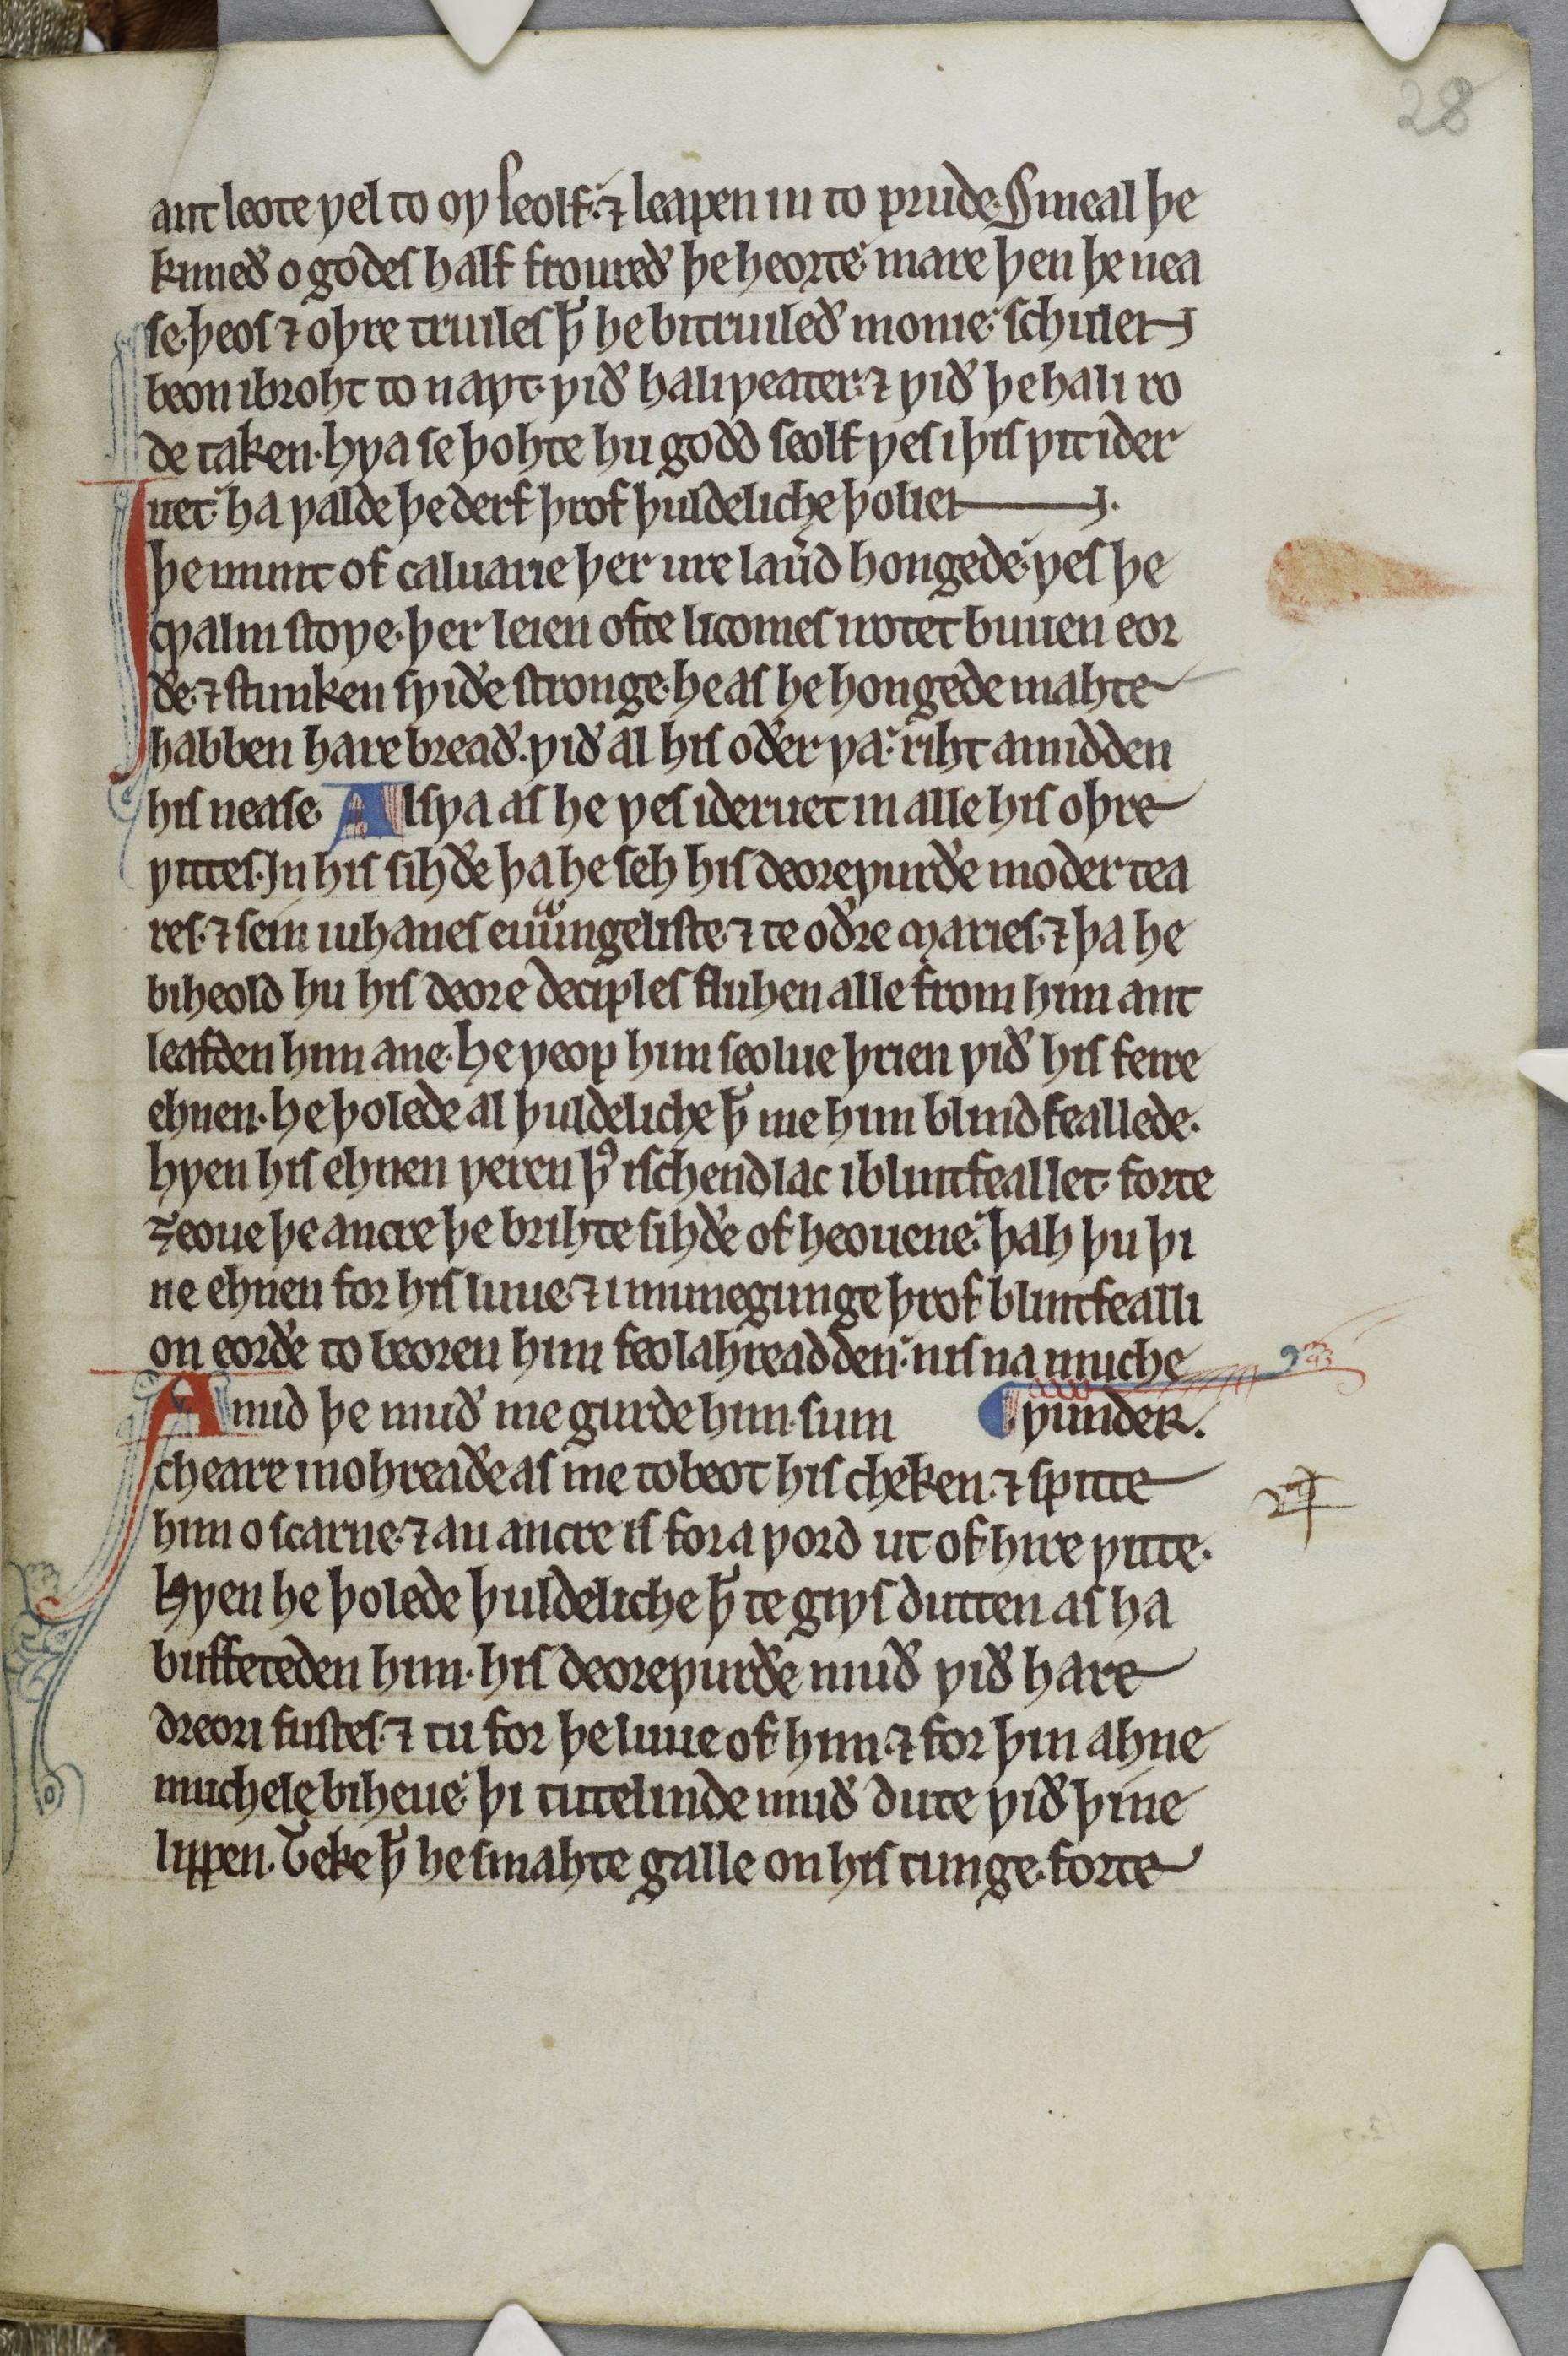 28
ant leote ƿel to oƿ seolf.⁊ leapen in to prude. Smeal þe
kimeð o godes half froureð þe heorte mare þen þe nea
se. þeos ⁊ oþre truiles þ̅ he bitruileð monie. schulen
beon ibroht to naƿt. ƿið hali ƿeater. ⁊ ƿið þe hali ro
de taken. hƿa se þohte hu godd seolf ƿes i þis ƿit ider
uet. ha ƿalde þe derf þrof þuldeliche þolien.
I þe munt of caluarie þer ure lauerd hongede. ƿes þe
cƿalm stoƿe. þer leien ofte licomes irotet buuen eor
ðe. ⁊ stunken sƿiðe stronge. he as he hongede mahte
habben hare breað. ƿið al his oðer ƿa. riht amidden
his nease. Alsƿa as he ƿes ideruet in alle his oþre
ƿittes. In his sihðe þa he seh his deoreƿurðe moder tea
res. ⁊ sein iuhanes euuangeliste. ⁊ te oðre maries. ⁊ þa he
biheold hu his deore deciples fluhen alle from him ant
leafden him ane. he ƿeop him seolue þrien ƿið his feire
ehnen. he þolede al þuldeliche þ̅ me him blindfeallede.
hƿen his ehnen ƿeren þ⁹ i schendlac iblintfeallet. forte
ȝeoue þe ancre þe brihte sihðe of heouene. þah þu þi
ne ehnen for his luue. ⁊ i munegunge þrof blintfealli
on eorðe to beoren him feolahreadden. nis na muche
Amid þe muð me gurde him. sum ƿunder.
cheare inohreaðe as me tobeot his cheken. ⁊ spitte
him o scarne. ⁊ an ancre is for a ƿord ut of hire ƿitte.
Hƿen he þolede þuldeliche þ̅ te giƿs dutten as ha
buffeteden him. his deoreƿurðe muð ƿið hare
dreori fustes. ⁊ tu for þe luue of him. ⁊ for þin ahne
muchele biheue. þi tutelinde muð dute ƿið þine
lippen. Teke þ̅ he smahte galle on his tunge. forte